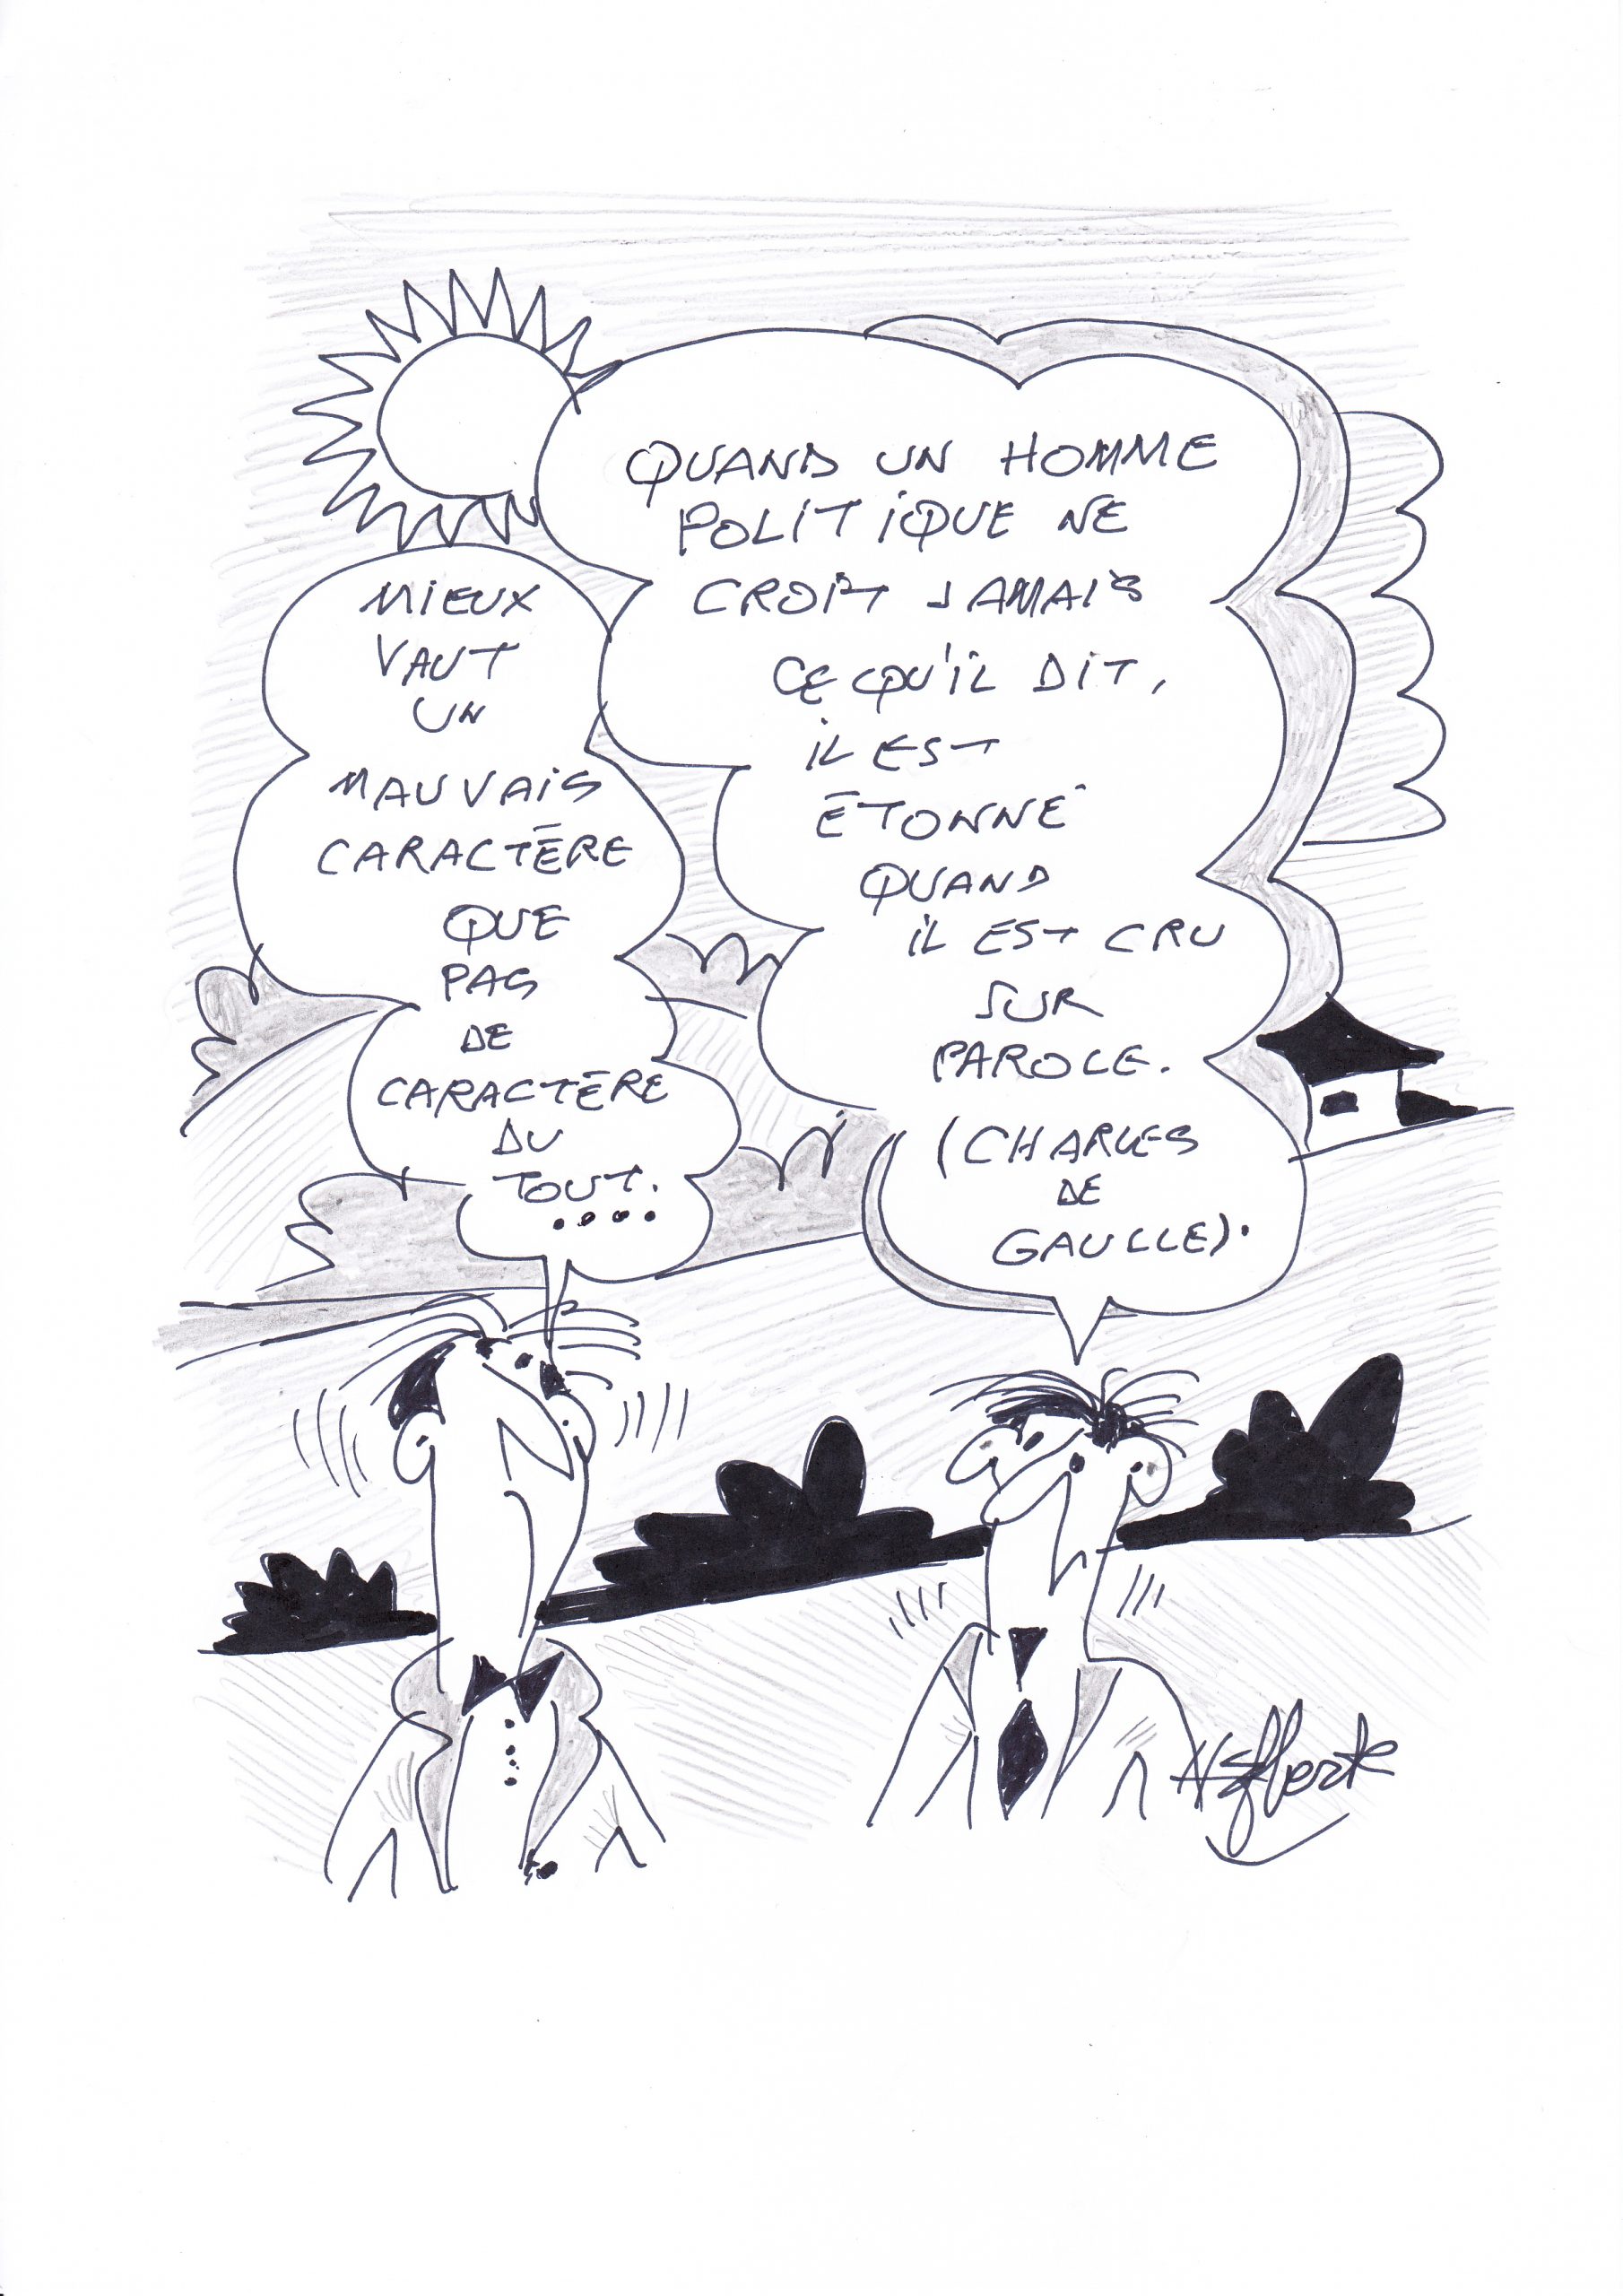 MIEUX
VAUT
UN
MAUVAIS
CARACTÈRE
QUE
PAS
DE
CARACTÈRE
DU
TOUT.
....
QUAND UN HOMME
POLITIQUE NE
CROIT JAMAIS
CE QU'IL DIT,
IL EST
ÉTONNÉ
QUAND
IL EST CRU
SUR
PAROLE.
(CHARLES
DE
GAULLE).